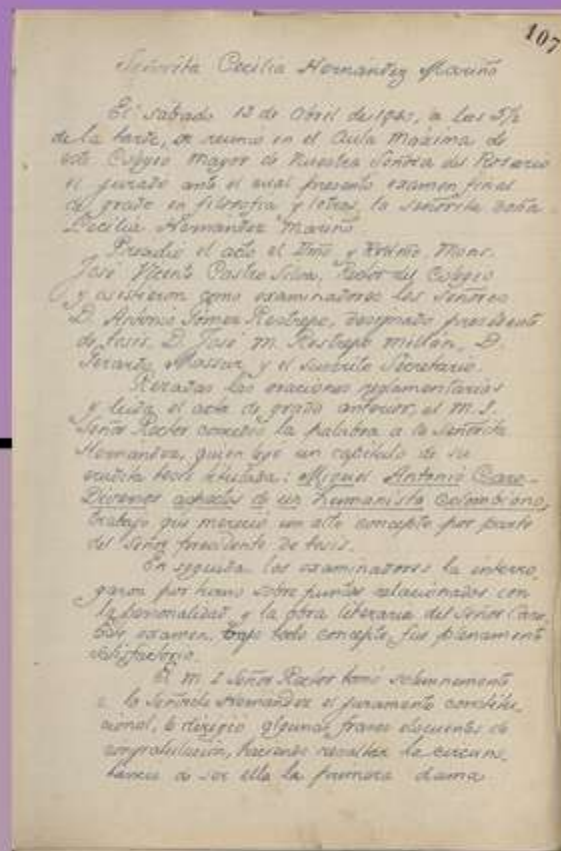 107
Señorita Cecilia Hernández Mariño
El sábado 12 de Abril de 19, a las 5½
de la tarde, se reunió en el Aula Máxima de
este Colegio Mayor de Nuestra Señora del Rosario
el jurado ante el cual presentó examen final
de grado en filosofía y letras, la señorita doña
Cecilia Hernández Mariño.
Presidió el acto el Ilmo. y Rvdmo. Mons.
José Vicente Castro Silva, Rector del Colegio
y asistieron como examinadores los Señores
D. Antonio Gómez Restrepo, designado presidente
de tesis, D. José M. Restrepo Millán, D.
Gerardo y el suscrito Secretario.
Rezadas las oraciones reglamentarias
y leída el acta de grado anterior, el M. I.
Señor Rector concedió la palabra a la Señorita
Hernández, quien leyó un capítulo de su
erudita tesis titulada: Miguel Antonio Caro-
Diversos aspectos de un humanista colombiano,
trabajo que mereció un alto concepto por parte
del Señor presidente de tesis.
En seguida los examinadores la interro-
garon por turno sobre puntos relacionados con
la personalidad y la obra literaria del Señor Caro.
examen, bajo todo concepto, fue plenamente
satisfactorio.
El M. I. Señor Rector tomó solemnemente
a la Señorita Hernández el juramento constitu-
cional, le dirigió algunas frases elocuentes de
congratulación, haciendo resaltar la circuns-
tancia de ser ella la primera dama